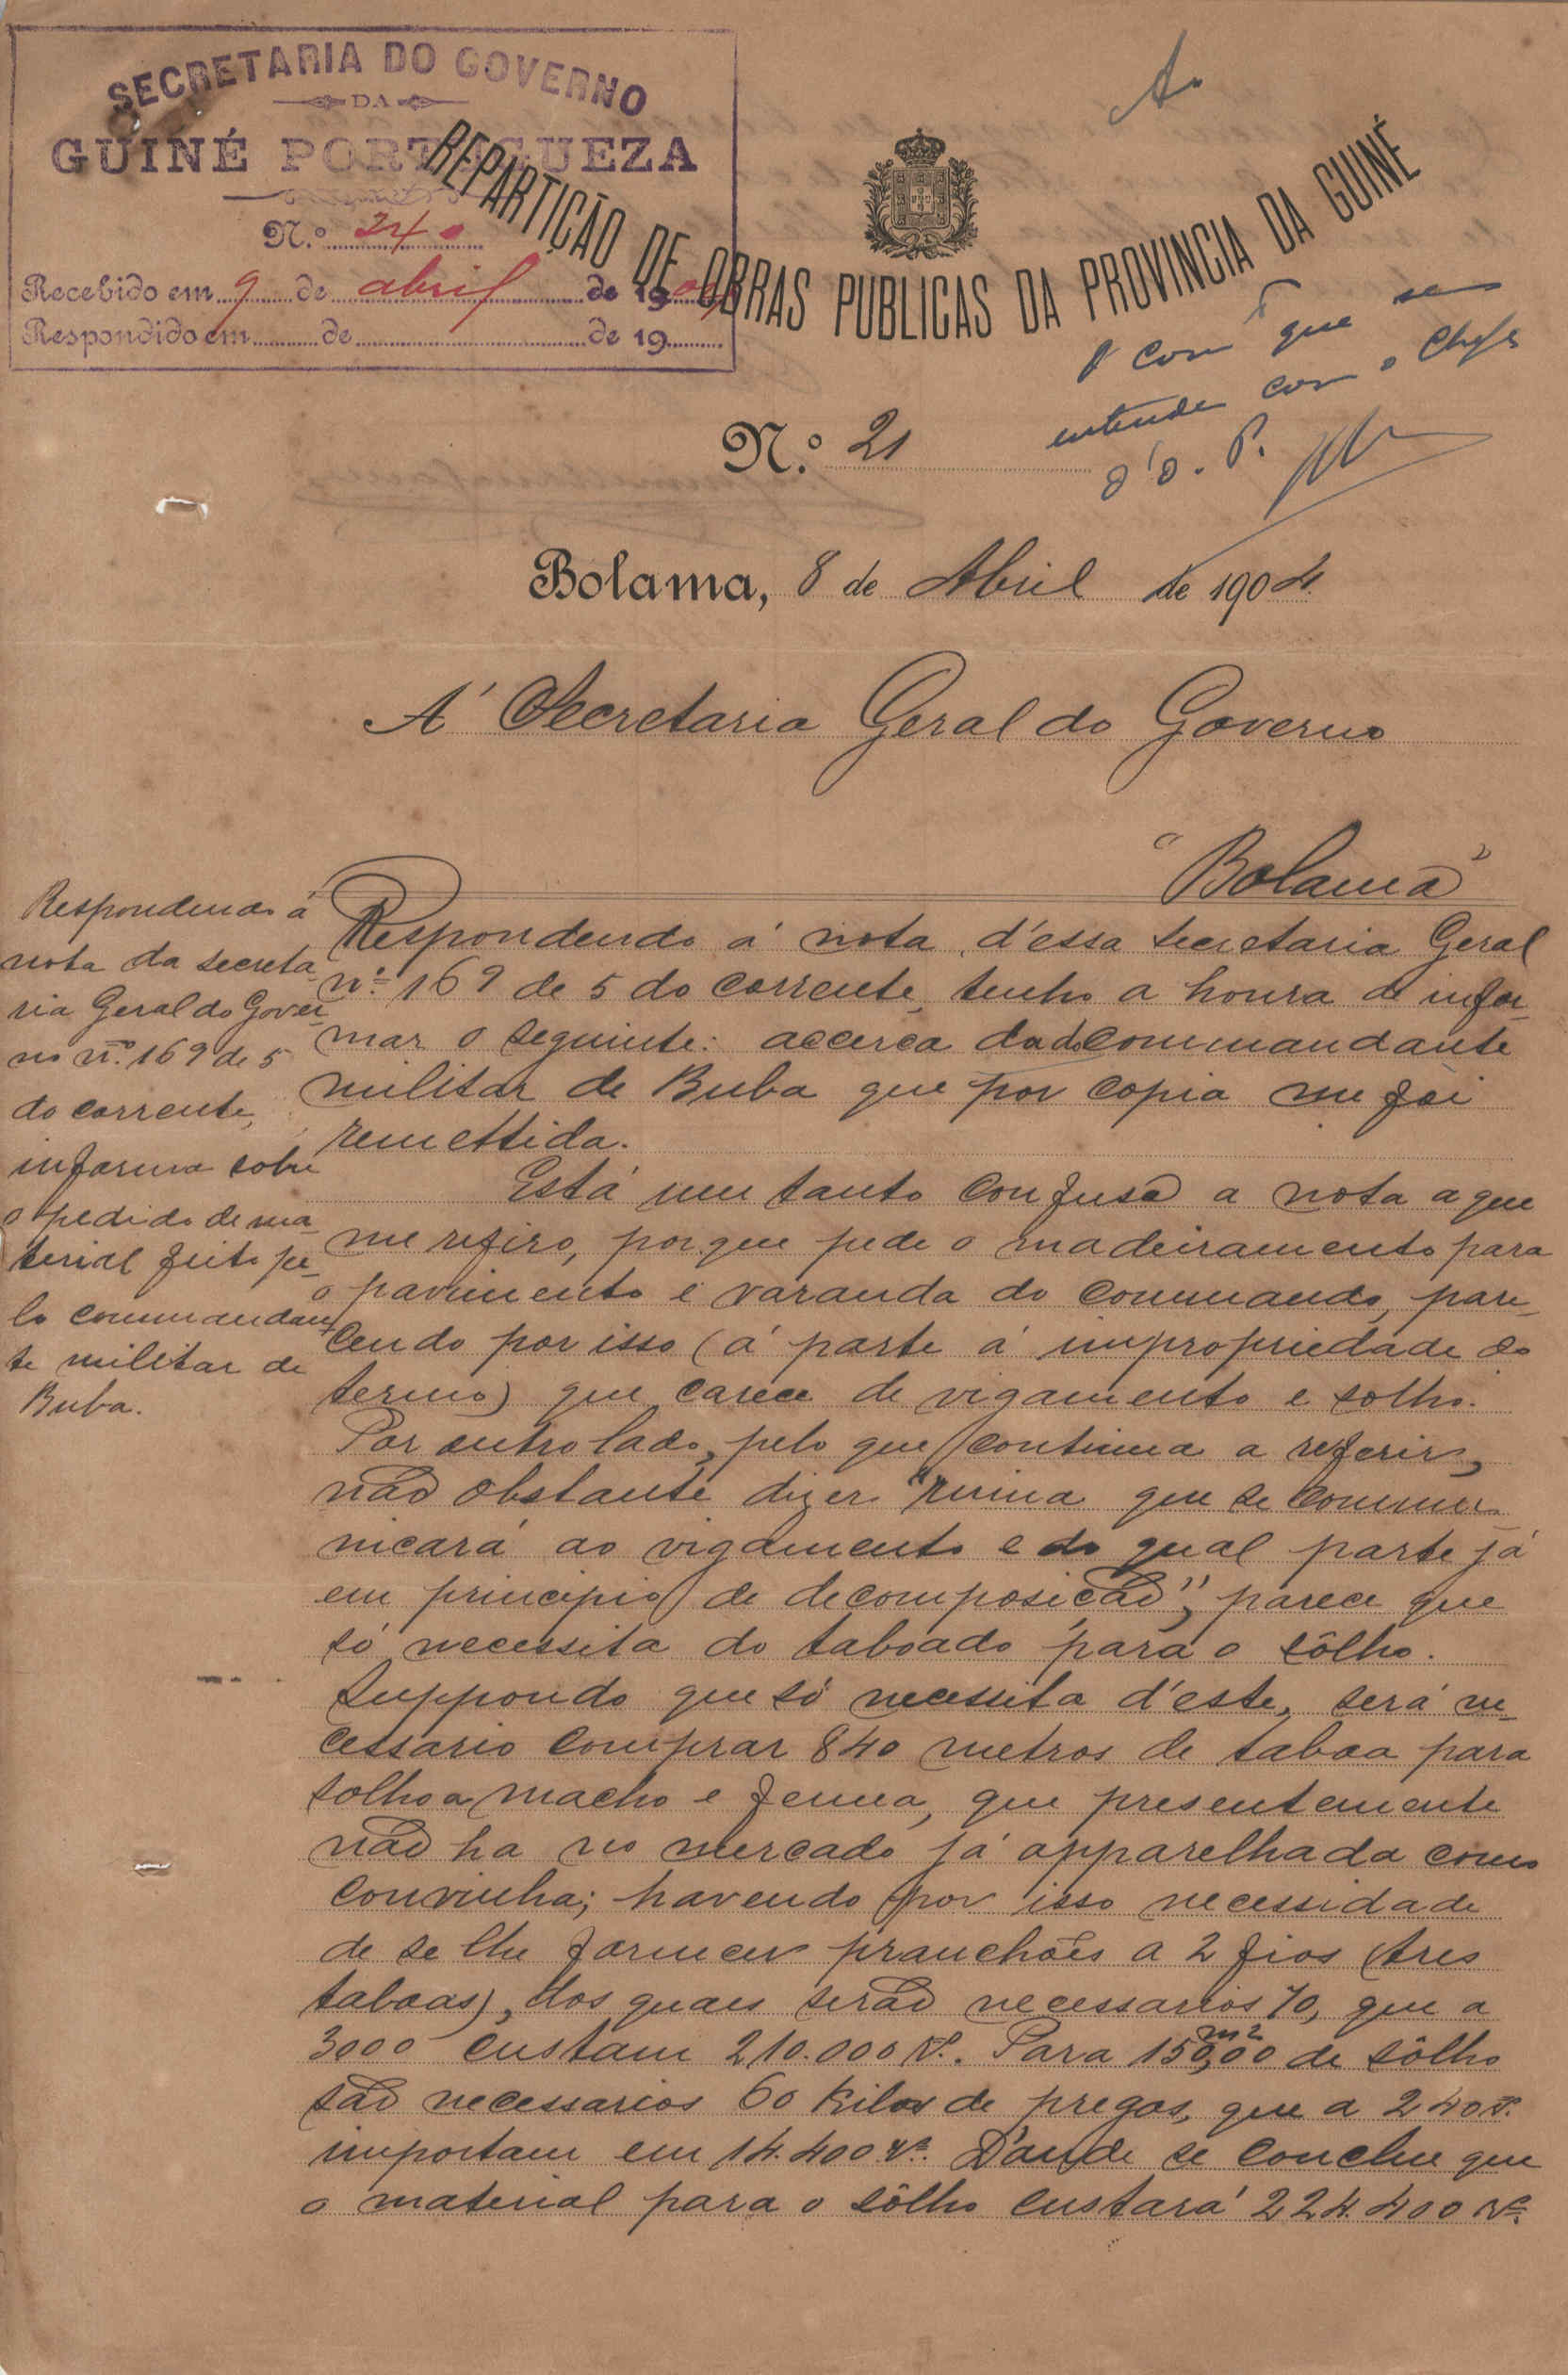 SECRETARIA DO GOVERNO
DA
GUINÉ PORTUGUEZA
N.º 240
Recebido em 9 de abril de 1904
Respondido em de de 19
REPARTIÇÃO DE OBRAS PUBLICAS DA PROVINCIA DA GUINÉ
com que se
entende com o Chefe
d'O. P.
N.º 21
Bolama, 8 de Abril de 1904
A' Secretaria Geral do Governo
"Bolama"
Respondendo á
nota da secreta-
ria Geral do Gover-
no n.º 169 de 5
do corrente,
informa sobre
o pedido de ma-
terial feito pe-
lo commandan-
te militar de
Buba.
Respondendo á nota d'essa secretaria Geral
n.º 169 de 5 do corrente, tenho a honra de infor-
mar o seguinte: acerca da do commandante
militar de Buba que por copia me foi
remettida.
Está um tanto confusa a nota a que
me refiro, porque pede o madeiramento para
o pavimento e varanda do commando, pare-
cendo por isso (á parte á impropriedade do
termo) que carece de vigamento e solho.
Por outro lado, pelo que continua a referir,
não obstante dizer "ruina que se commu-
nicará ao vigamento e do qual parte já
em principio de decomposição", parece que
só necessita do taboado para o sôlho.
Suppondo que só necessita d'este, será ne-
cessario comprar 840 metros de taboa para
solho a macho e femea, que presentemente
não ha no mercado já apparelhada como
convinha; havendo por isso necessidade
de se lhe fornecer pranchões a 2 fios (tres
taboas), dos quaes serão necessarios 70, que a
3000 custam 210.000 rs. Para 150,00 m2 de sôlho
são necessarios 60 kilos de pregos, que a 240 rs.
importam em 14.400 rs. D'onde se conclue que
o material para o sôlho custará 224.400 rs.